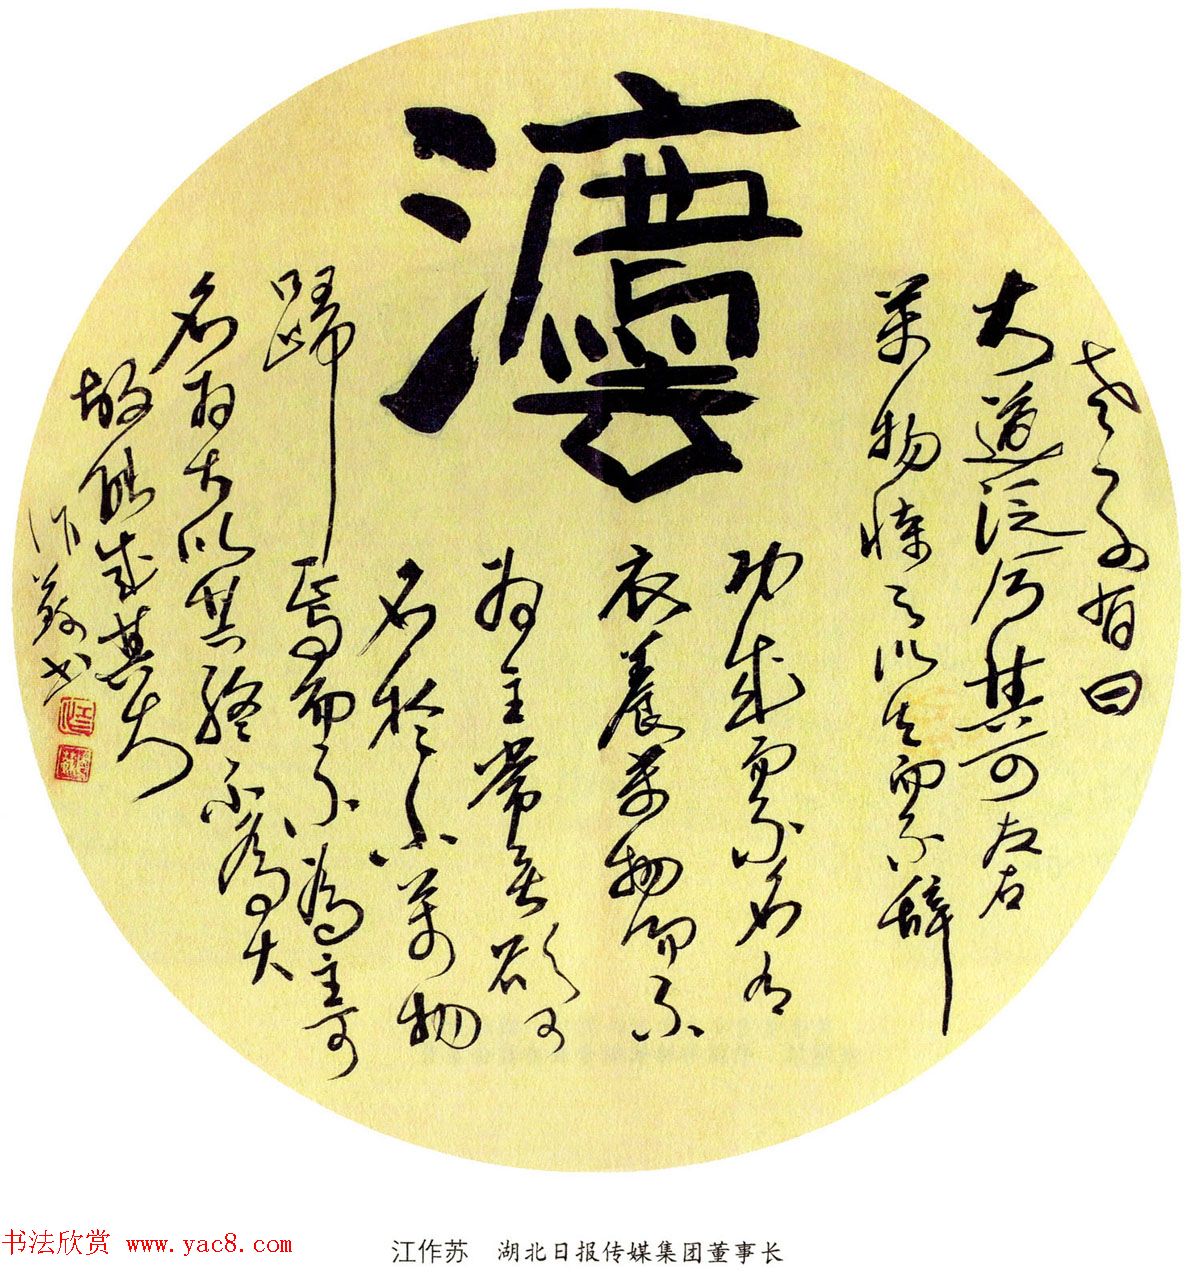 灋
老子有曰
大道泛兮其可左右
萬物恃之以生而不辭
功成而不名有
衣養萬物而不
为主常无欲可
名於小萬物
歸焉而不為主可
名为大以其終不為大
故能成其大
作蘇书
书法欣赏 www.yac8.com
江作苏 湖北日报传媒集团董事长